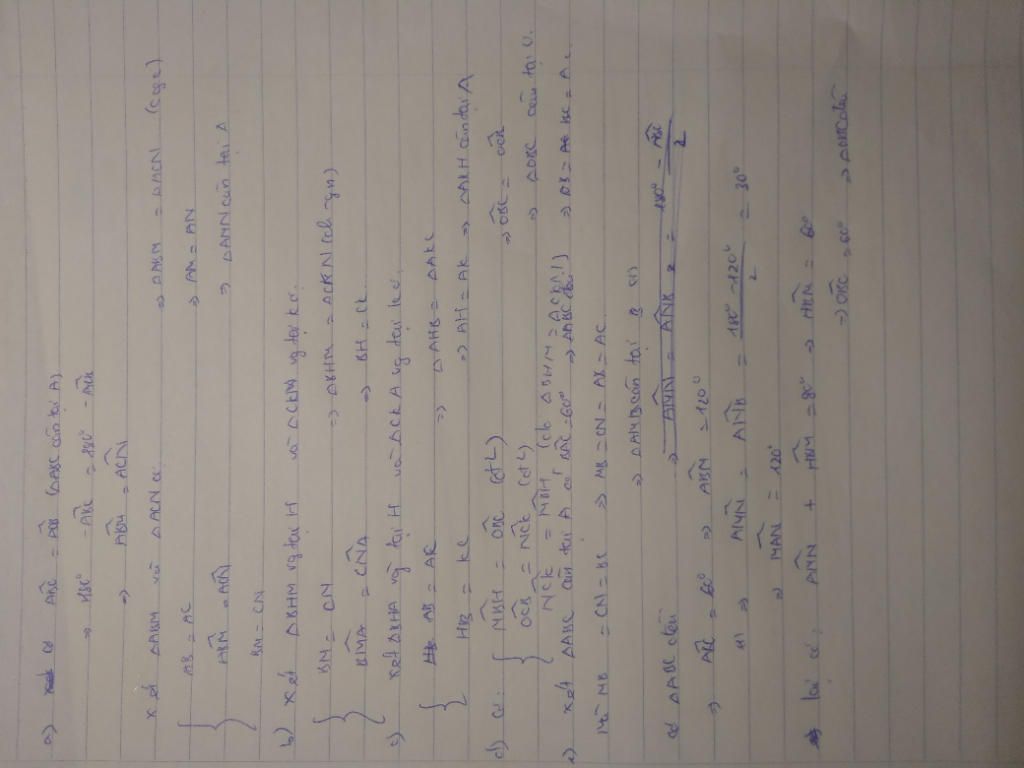 a) có ABC = ACB (ΔABC cân tại A)
⇒ 180° - ABC = 180° - ACB
⇒ ABM = ACN
xét ΔABM và ΔACN có:
AB = AC
ABM = ACN
BM = CN
⇒ ΔABM = ΔACN (cgc)
⇒ AM = AN
⇒ ΔAMN cân tại A
b) xét ΔBHM vg tại H và ΔCKN vg tại K có.
BM = CN
BMA = CNA
⇒ ΔBHM = ΔCKN (ch gn)
⇒ BH = CK
c) xét ΔBHA vg tại H và ΔCKA vg tại K có.
AB = AC
HB = KC
⇒ ΔAHB = ΔAKC
⇒ AH = AK ⇒ ΔAKH cân tại A
d) có. MBH = OBC (đ2)
OCB = NCK (đ2)
NCK = MBH (cb ΔBHM = ΔCKN)
⇒ OBC = OCB
⇒ ΔOBC cân tại O.
⇒ OB = OC
e) xét ΔABC cân tại A có BAC = 60° ⇒ ΔABC đều ⇒ AB = BC = AC.
Mà MB = CN = BC ⇒ MB = CN = AB = AC
⇒ ΔAMB cân tại B (1)
có ΔABC đều
⇒ ABC = 60° ⇒ ABM = 120°
(1) ⇒ AMN = ANB = 180° - 120° / 2 = 30°
⇒ MAN = 120°
lại có. AMN + HBM = 90° ⇒ HBM = 60°
⇒ OBC = 60° ⇒ ΔOBC đều